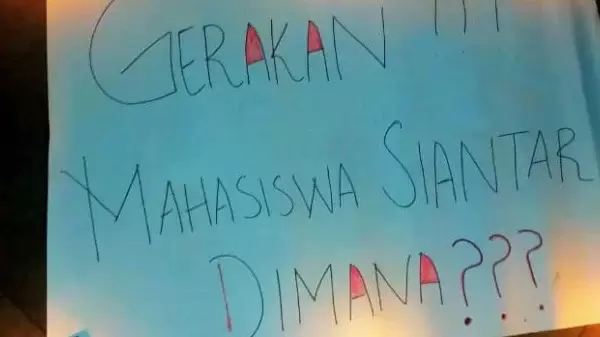 GERAKAN !!!
MAHASISWA SIANTAR
DIMANA???